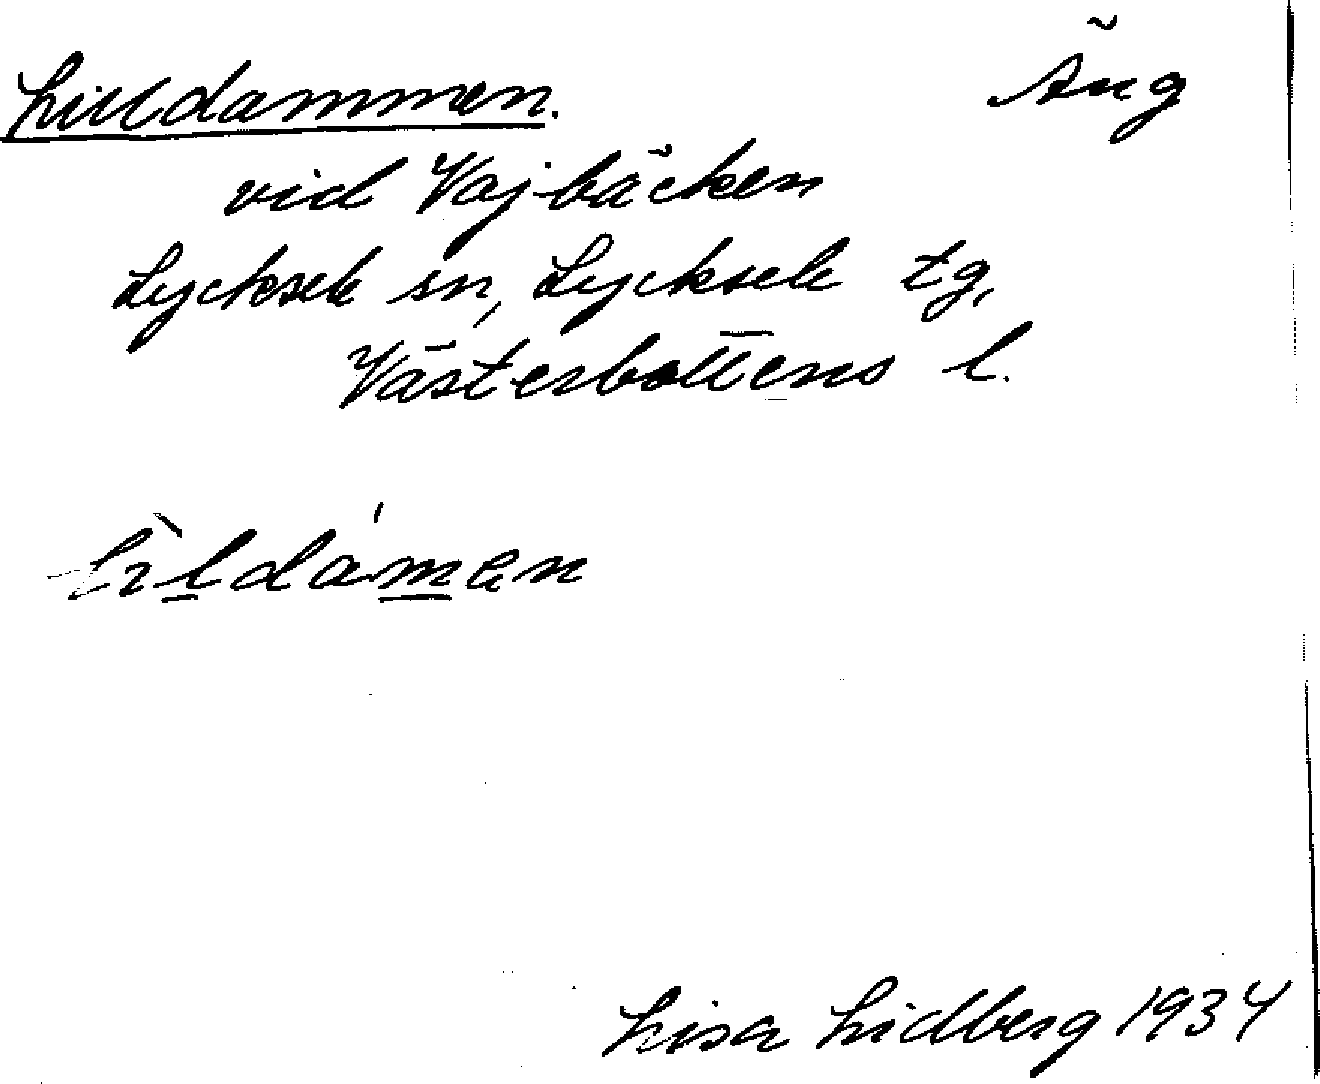 Lilldammen. Äng
vid Vajbäcken
Lycksele sn, Lycksele tg,
Västerbottens l.
Lìldámen
Lisa Lidberg 1934